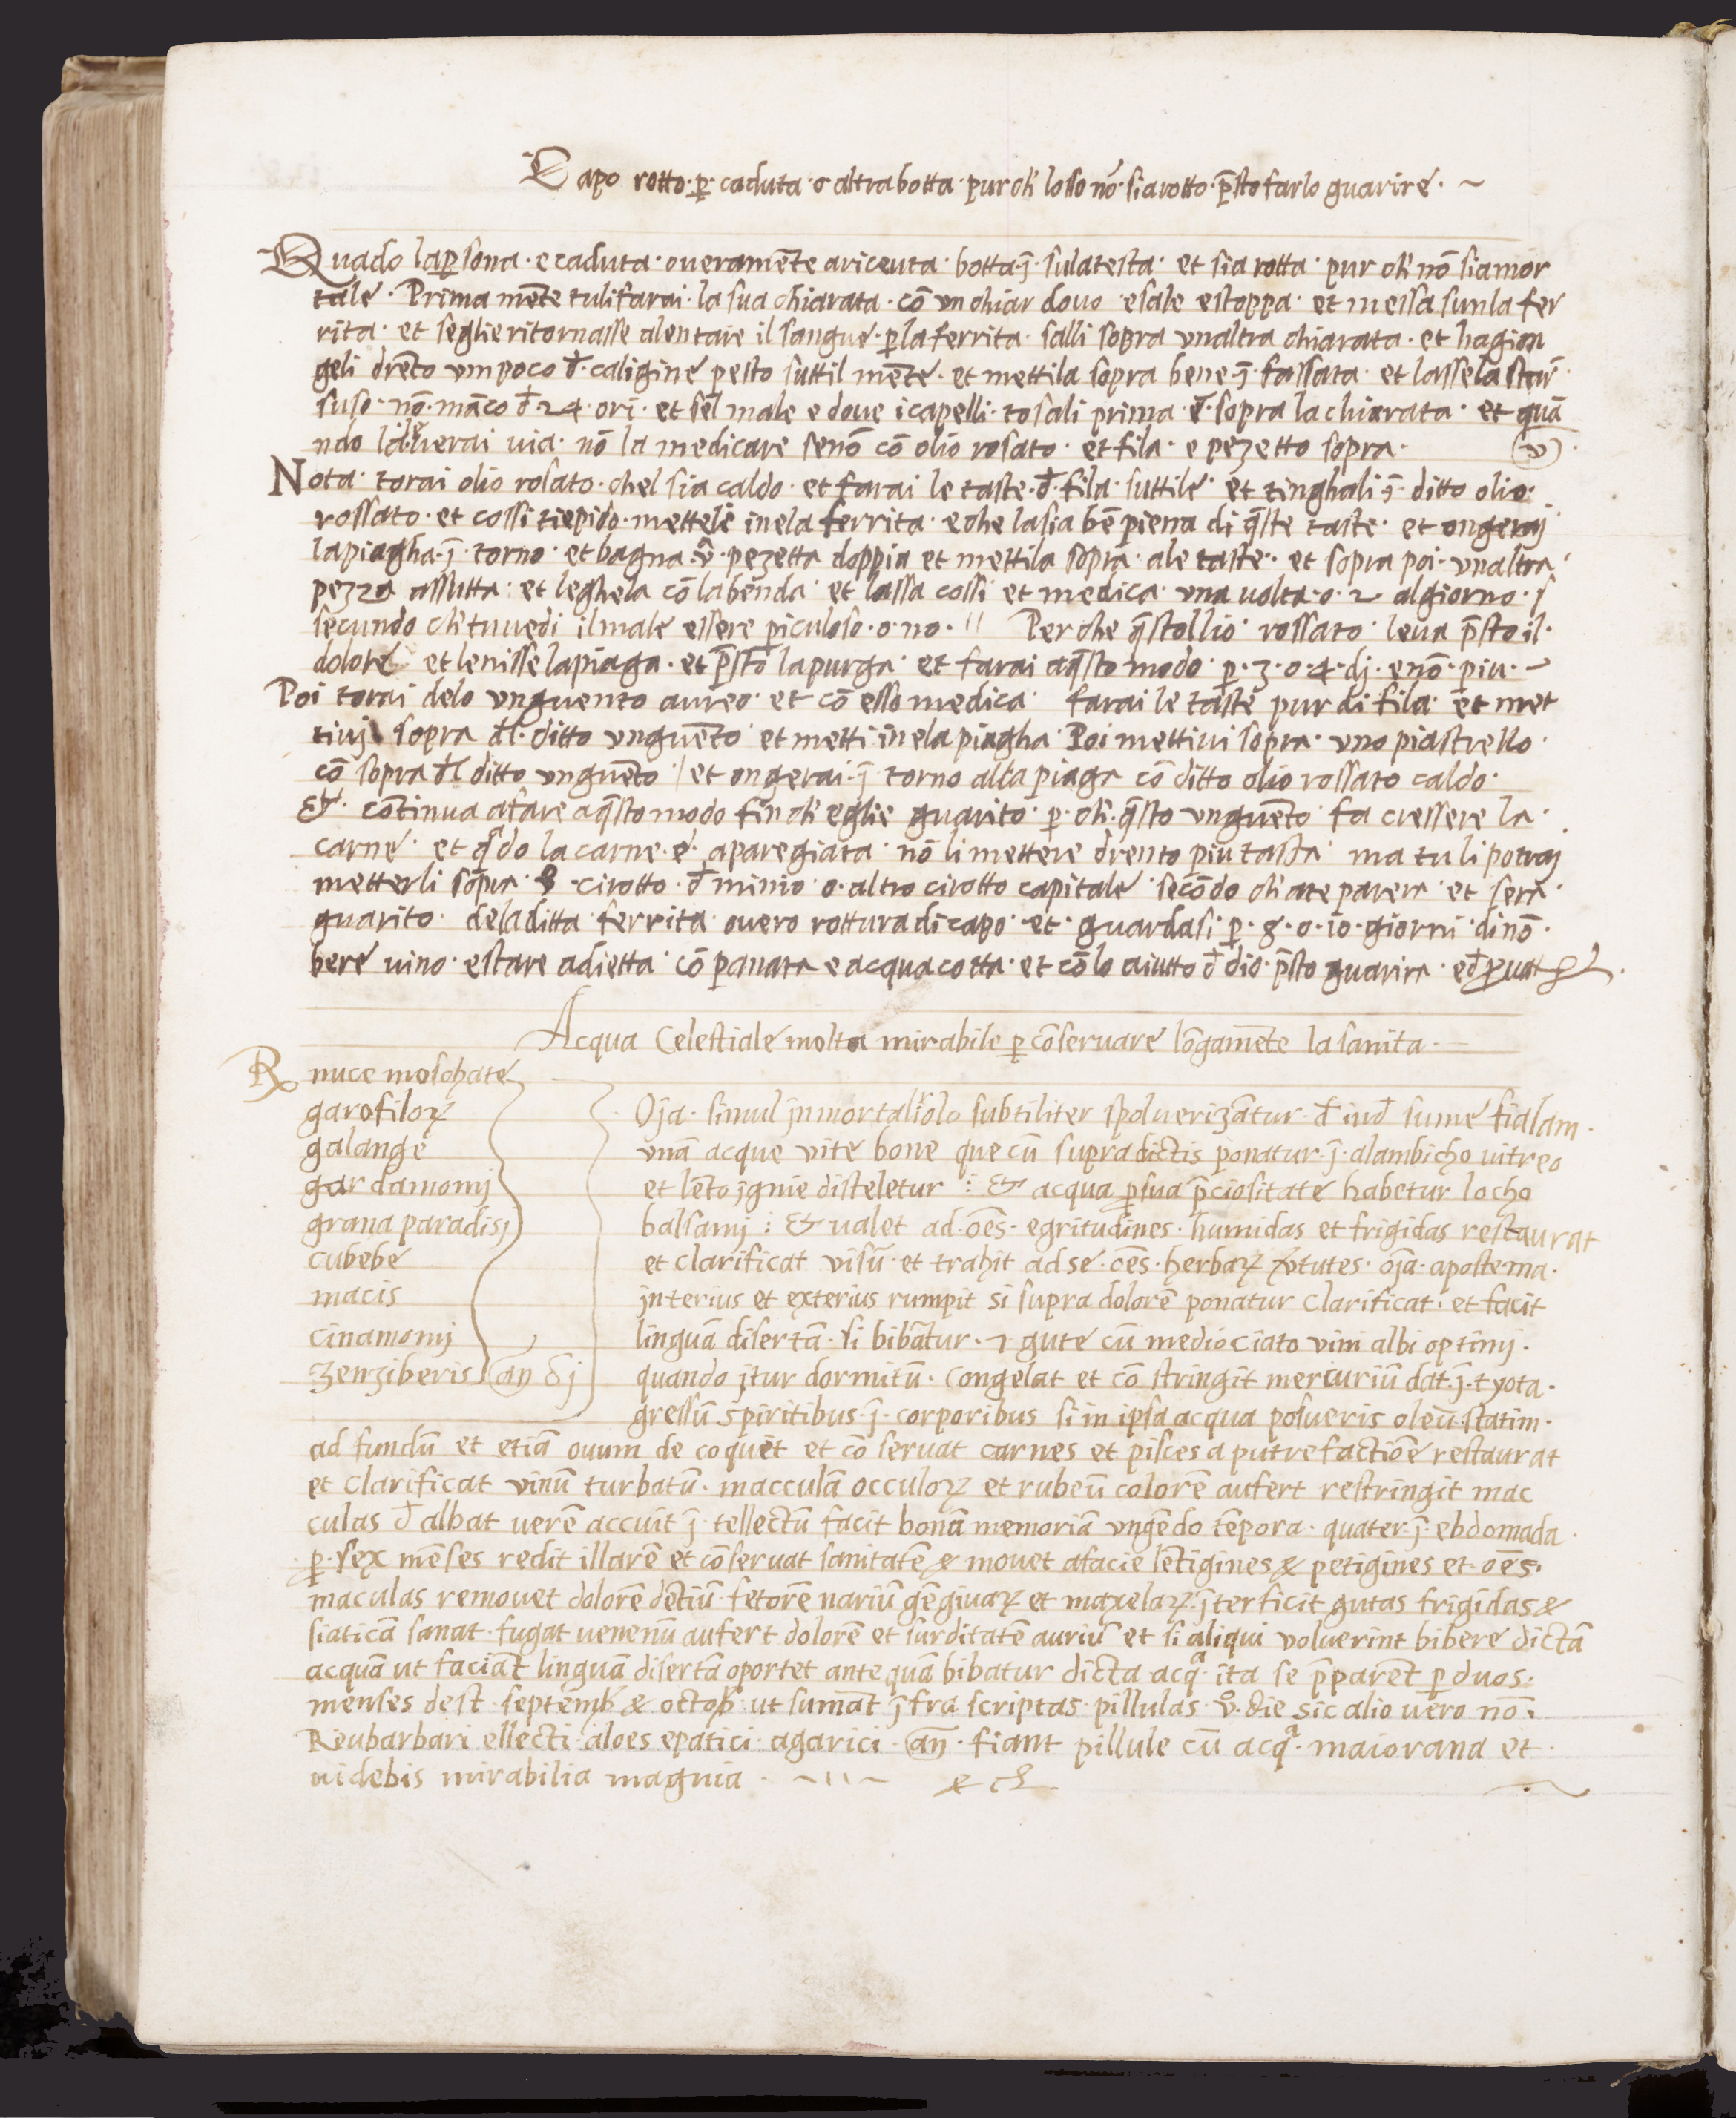 Capo rotto · p̱ · caduta · o altra botta · pur ch' losso nō · sia rotto · p̄sto farlo guarire · ~
Quādo la ꝑsona · e caduta · overamēte a riceuta · botta · ȷ̄ · sula testa · et sia rotta · pur ch' nō sia mor
tale · Prima mēte tu li farai · la sua chiarata · cō un chiar dovo e sale e stoppa · et messa sun la fer
rita · et seglie ritornasse a lentare il sangue · ꝑ la ferrita · falli sopra unaltra chiarata · et hagion
geli drēto um poco đ · caligine pesto suttil mēte · et mettila sopra bene · ȷ̄ · fassata · et lassela star ·
suso · nō · māco đ 24 · ori · et sel male e dove i capelli · tosali prima · đ · sopra la chiarata · et quā
ndo la leverai via · nō la medicare senō cō olio rosato · et fila · e pezetto sopra ·
Nota · torai olio rosato · chel sia caldo · et farai le taste · đ · fila · suttile · et tinghali ȷ̄ · ditto olio ·
rossato · et cossi tiepido · mettele in ela ferrita · e che la sia bē piena di q̄ste taste · et ongeraj
la piagha · ȷ̄ · torno · et bagna · v̄ · pezetta doppia et mettila sopra · ale taste · et sopra poi · unaltra
pezza assutta · et leghela cō la benda · et lassa cossi et medica · una uolta · o · 2 al giorno · s
secundo ch' tu uedi il male essere piculoso · o · no · " Per che q̄stollio rossato leva p̄sto il ·
dolore et lenisse la piaga · et p̄sto la purga · et farai a q̄sto modo · ꝑ · 3 · o · 4 · dj · e nō · piu ·
Poi torai delo unguento aureo · et cō esso medica farai le taste pur di fila · et met
tiuj sopra đl · ditto unguēto et metti in ela piagha · Poi mettivi sopra · uno piastrello ·
cō sopra đl ditto unguēto | et ongerai · ȷ̄ torno alla piaga cō ditto olio rossato caldo ·
Et · cōtinua a fare a q̄sto modo fin ch' eglie guarito · ꝑ · ch' · q̄sto unguēto fa cressere la ·
carne · et qᵃdo la carne · e · aparegiata · nō li mettere drento piu tasta ma tu li potraj
metterli sopra · cirotto · đ minio · o · altro cirotto capitale · secōdo ch' a te parera et sera ·
guarito · dela ditta ferrita overo rottura di capo · et · guardasi · ꝑ · 8 · o · 10 · giorni · di nō ·
bere vino · e stare a dietta · cō panata e acqua cotta · et cō lo aiutto đ dio · p̄sto guarira ·
Acqua Celestiale molto mirabile ꝑ cōservare lōgamēte la sanita ·
℞ nuce moschate
garofiloꝝ
galange
gardamomj
grana paradisj
cubebe
macis
cinamomj
zenziberis an ʒ j
Oīa · simul jn mortariolo subtiliter spolverizātur · đ inđ sume fialam ·
unā acque vite bone que cū supradictis ponatur · ȷ̄ · alambicho vitreo
et lēto jgnie disteletur : & acqua ꝑ sua p̄ciositate habetur locho
balsamj : & ualet ad · oēs · egritudines · humidas et frigidas restaurat
et clarificat visū · et trahit ad se · oēs · herbaꝝ v̄tutes · oīa · apostema ·
jnterius et exterius rumpit si supra dolorē ponatur clarificat · et facit
linguā disertā · si bibātur · 2 gute cū medio ciato vini albi optimj ·
quando jtur dormitū · congelat et cō stringit mercuriū dat · ȷ̄ · tyota ·
gressū spiritibus · ȷ̄ · corporibus si in ipsa acqua posueris oleū statim ·
ad fundū et etiā ovum de coquit et cō servat carnes et pisces a putrefactiōe restaurat
et clarificat vinū turbatū · macculā occuloꝝ et rubeū colorē aufert restringit mac
culas đ albat uerē accuit ȷ̄ · tellectū facit bonā memoriā ungēdo tēpora · quater · ȷ̄ · ebdomada ·
ꝑ · sex mēses redit illarē et cōservat sanitatē & movet a facie lētigines & petigines et · oēs ·
maculas removet dolorē dētiū · fetorē nariū gēgivaꝝ et maxelaꝝ · ȷ̄terficit gutas frigidas &
siaticā sanat · fugat uenenū aufert dolorē et surditatē auriū et si aliqui voluerint bibere dictā
acquā ut faciāt linguā disertā oportet ante quā bibatur dicta acqᵃ · ita se p̄parēt ꝑ duos ·
menses dest · septemb & octob ut sumāt ȷ̄fra scriptas · pillulas · vº · die sic alio vero nō ·
Reubarbari ellecti · aloes epatici · agarici · an · fiant pillule cū acqᵃ · maiorana et ·
videbis mirabilia magnia · ~ " ~ & c